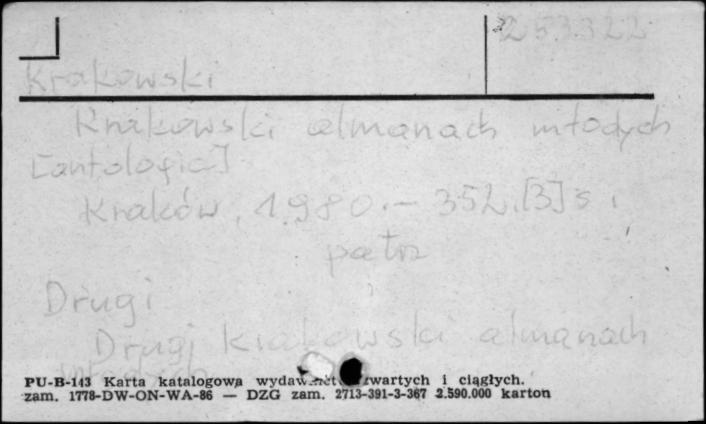 253322
Krakowski
Krakowski almanach młodych
[antologia]
Kraków, 1980. – 352, [3] s.
patrz
Drugi
Drugi Krakowski almanach
młodych
PU-B-143 Karta katalogowa wydawnictw zwartych i ciągłych.
zam. 1778-DW-ON-WA-86 — DZG zam. 2713-391-3-367 2.590.000 karton